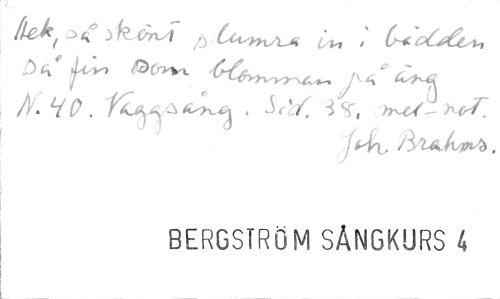 Hek, så skönt slumra in i bädden
så fin som blomman på äng
N. 40. Vaggsång. Sid. 38. mel-not.
Joh. Brahms.
BERGSTRÖM SÅNGKURS 4